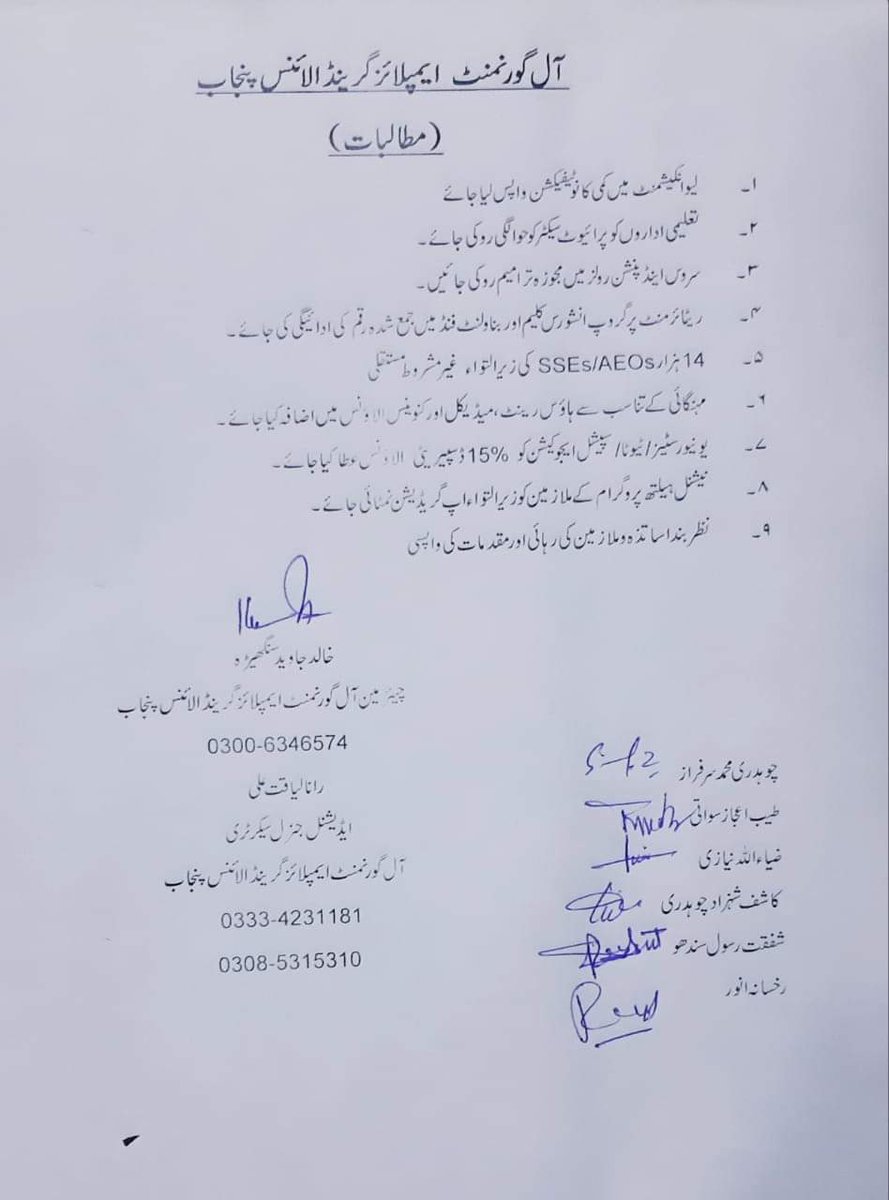 آل گورنمنٹ ایمپلائز گرینڈ الائنس پنجاب
(مطالبات)
۱۔ لیو انکیشمنٹ میں کمی کا نوٹیفیکشن واپس لیا جائے
۲۔ تعلیمی اداروں کو پرائیوٹ سیکٹر کو حوالگی روکی جائے۔
۳۔ سروس اینڈ پنشن رولز میں مجوزہ ترامیم روکی جائیں۔
۴۔ ریٹائرمنٹ پر گروپ انشورس کلیم اور بناولنٹ فنڈ میں جمع شدہ رقم کی ادائیگی کی جائے۔
۵۔ 14 ہزار SSEs/AEOs کی زیر التواء غیر مشروط مستقلی
۶۔ مہنگائی کے تناسب سے ہاؤس رینٹ، میڈیکل اور کنوینس الاونس میں اضافہ کیا جائے۔
۷۔ یونیورسٹیز/ٹیوٹا/سپیشل ایجوکیشن کو 15% ڈسپیریٹی الاونس عطا کیا جائے۔
۸۔ نیشنل ہیلتھ پروگرام کے ملازمین کو زیر التواء اپ گریڈیشن نمٹائی جائے۔
۹۔ نظر بند اساتذہ و ملازمین کی رہائی اور مقدمات کی واپسی
خالد جاوید سنگھیڑہ
چیئرمین آل گورنمنٹ ایمپلائز گرینڈ الائنس پنجاب
0300-6346574
رانا لیاقت علی
ایڈیشنل جنرل سیکرٹری
آل گورنمنٹ ایمپلائز گرینڈ الائنس پنجاب
0333-4231181
0308-5315310
چوہدری محمد سرفراز
طیب اعجاز سواتی
ضیاء اللہ نیازی
کاشف شہزاد چوہدری
شفقت رسول سندھو
رخسانہ انور